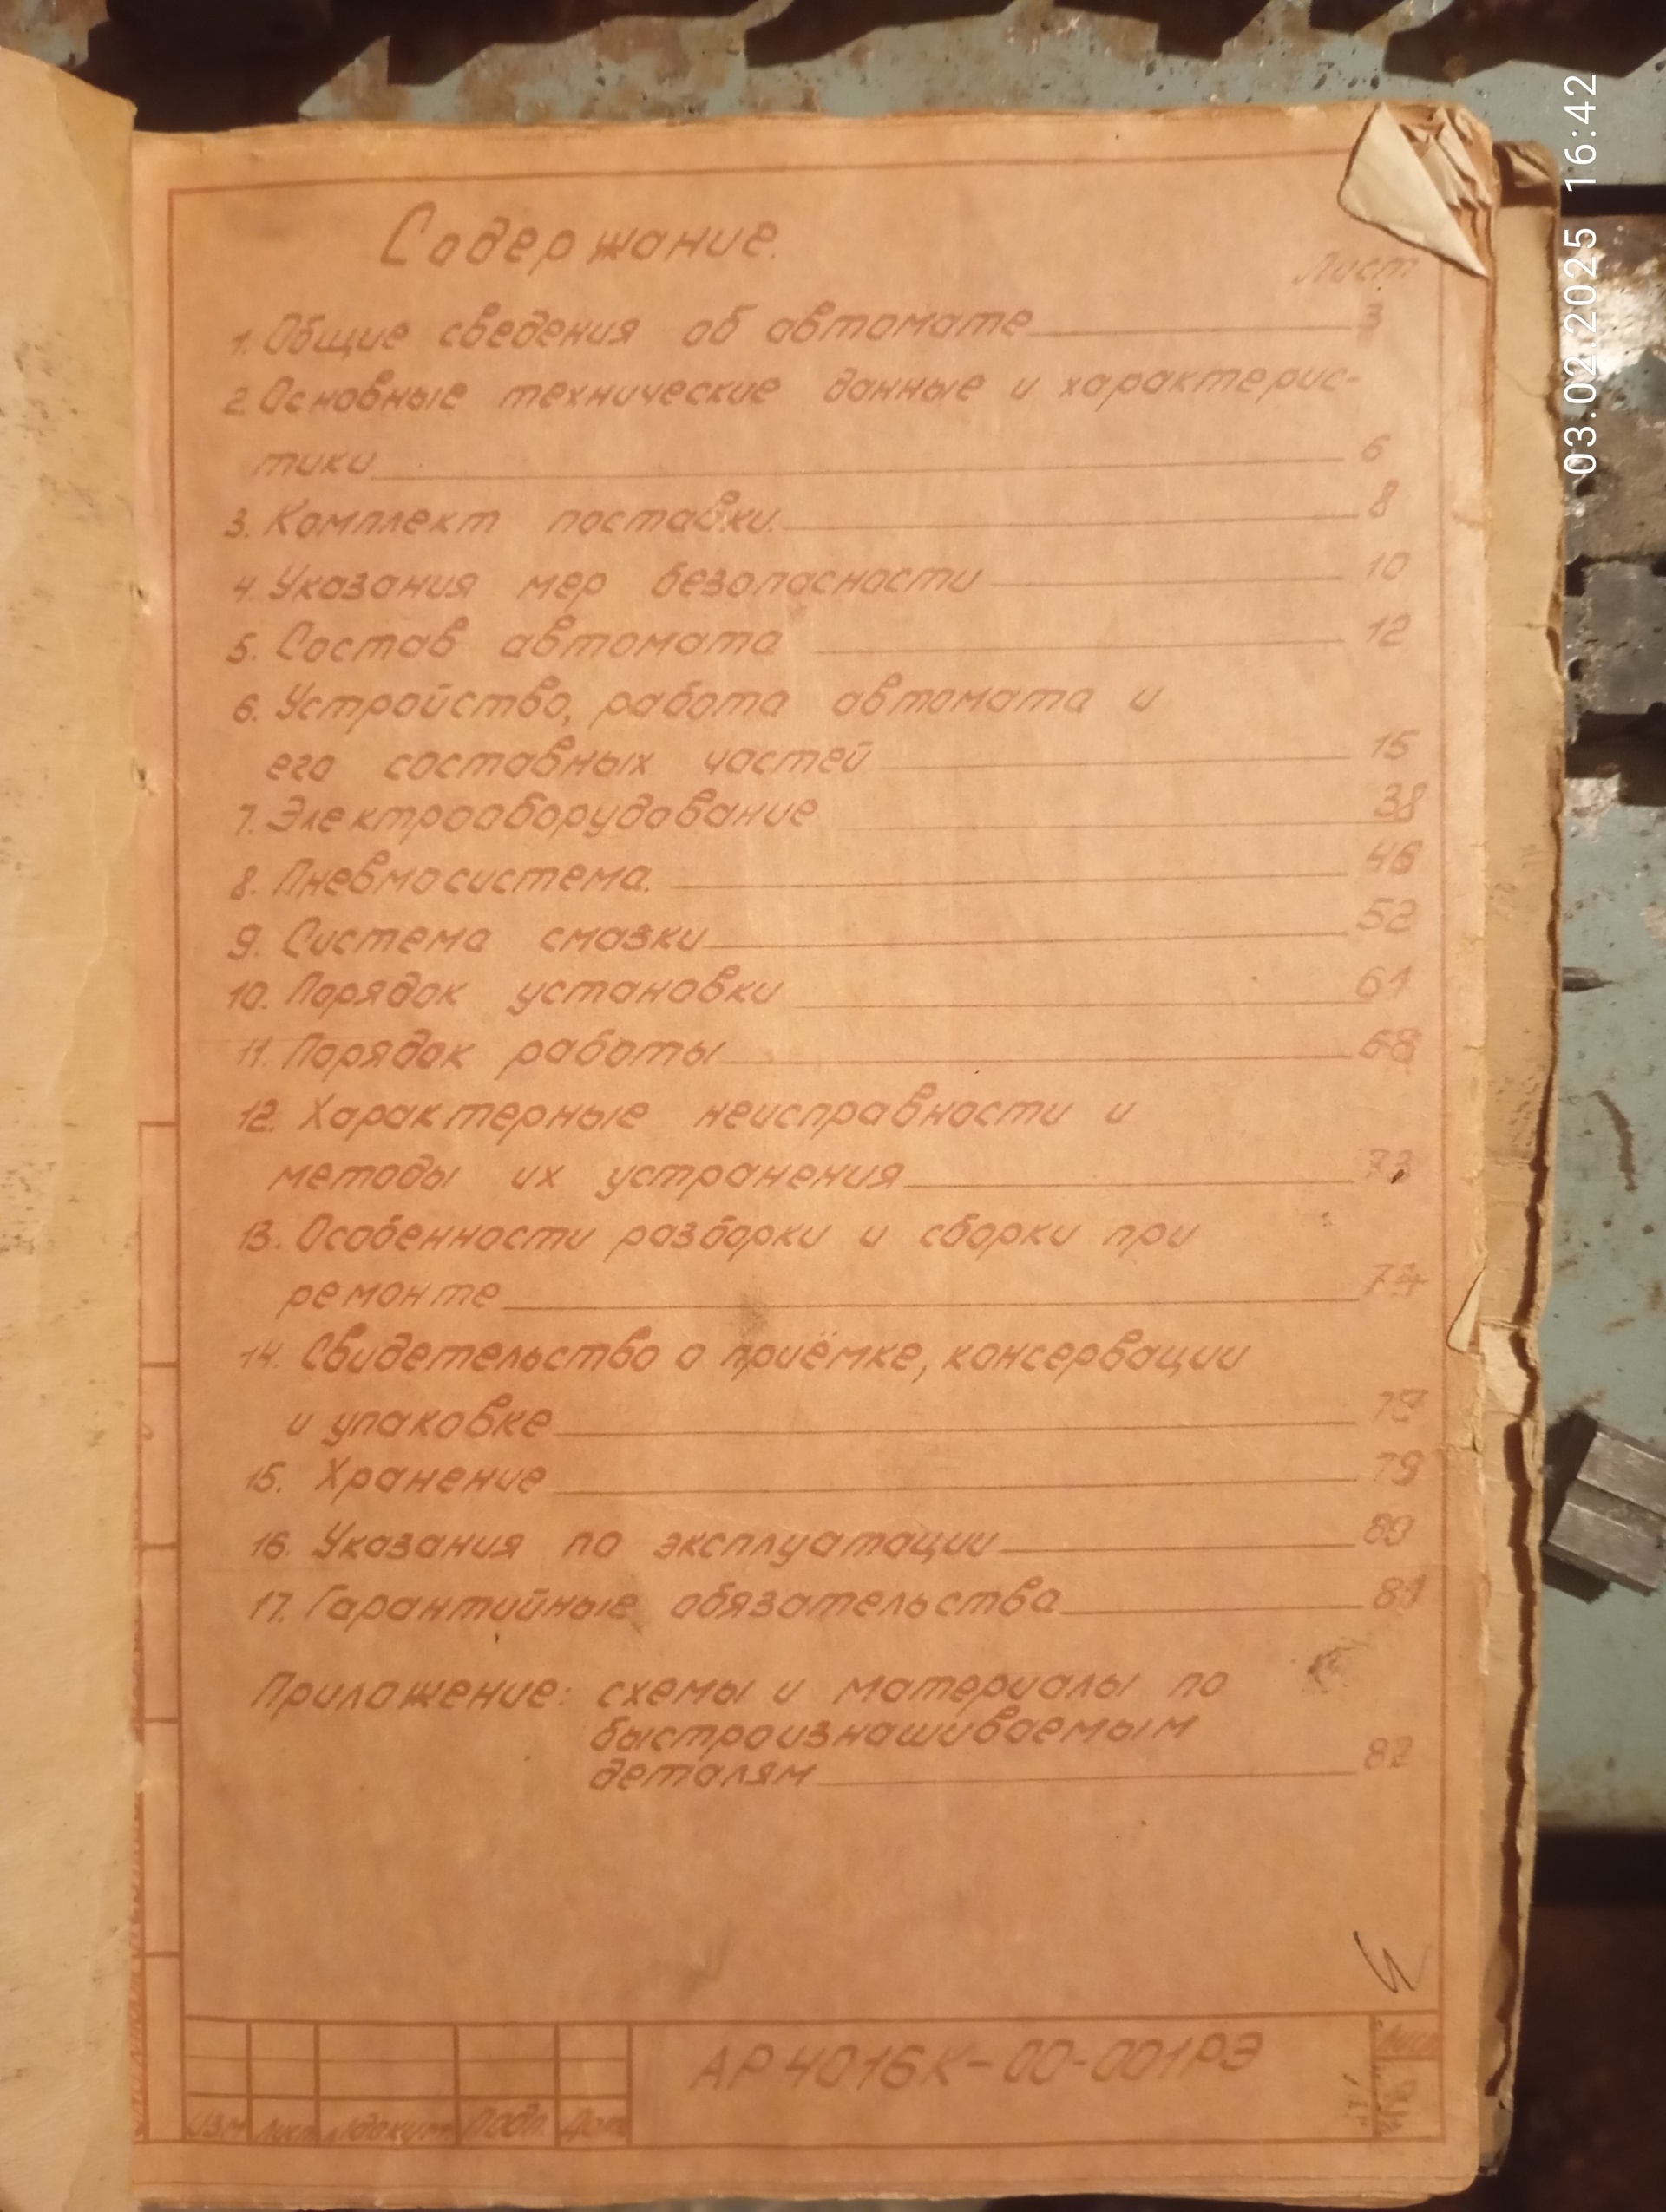 Содержание.
Лист
1. Общие сведения об автомате 3
2. Основные технические данные и характерис-
тики 6
3. Комплект поставки. 8
4. Указания мер безопасности 10
5. Состав автомата 12
6. Устройство, работа автомата и
его составных частей 15
7. Электрооборудование 38
8. Пневмосистема. 46
9. Система смазки 52
10. Порядок установки 61
11. Порядок работы 68
12. Характерные неисправности и
методы их устранения
13. Особенности разборки и сборки при
ремонте
14. Свидетельство о приёмке, консервации
и упаковке
15. Хранение 79
16. Указания по эксплуатации 80
17. Гарантийные обязательства 81
Приложение: схемы и материалы по
быстроизнашиваемым
деталям 82
АР4016К-00-001РЭ
Лист
Изм Лист №докум Подп. Дат
03.02.2025 16:42